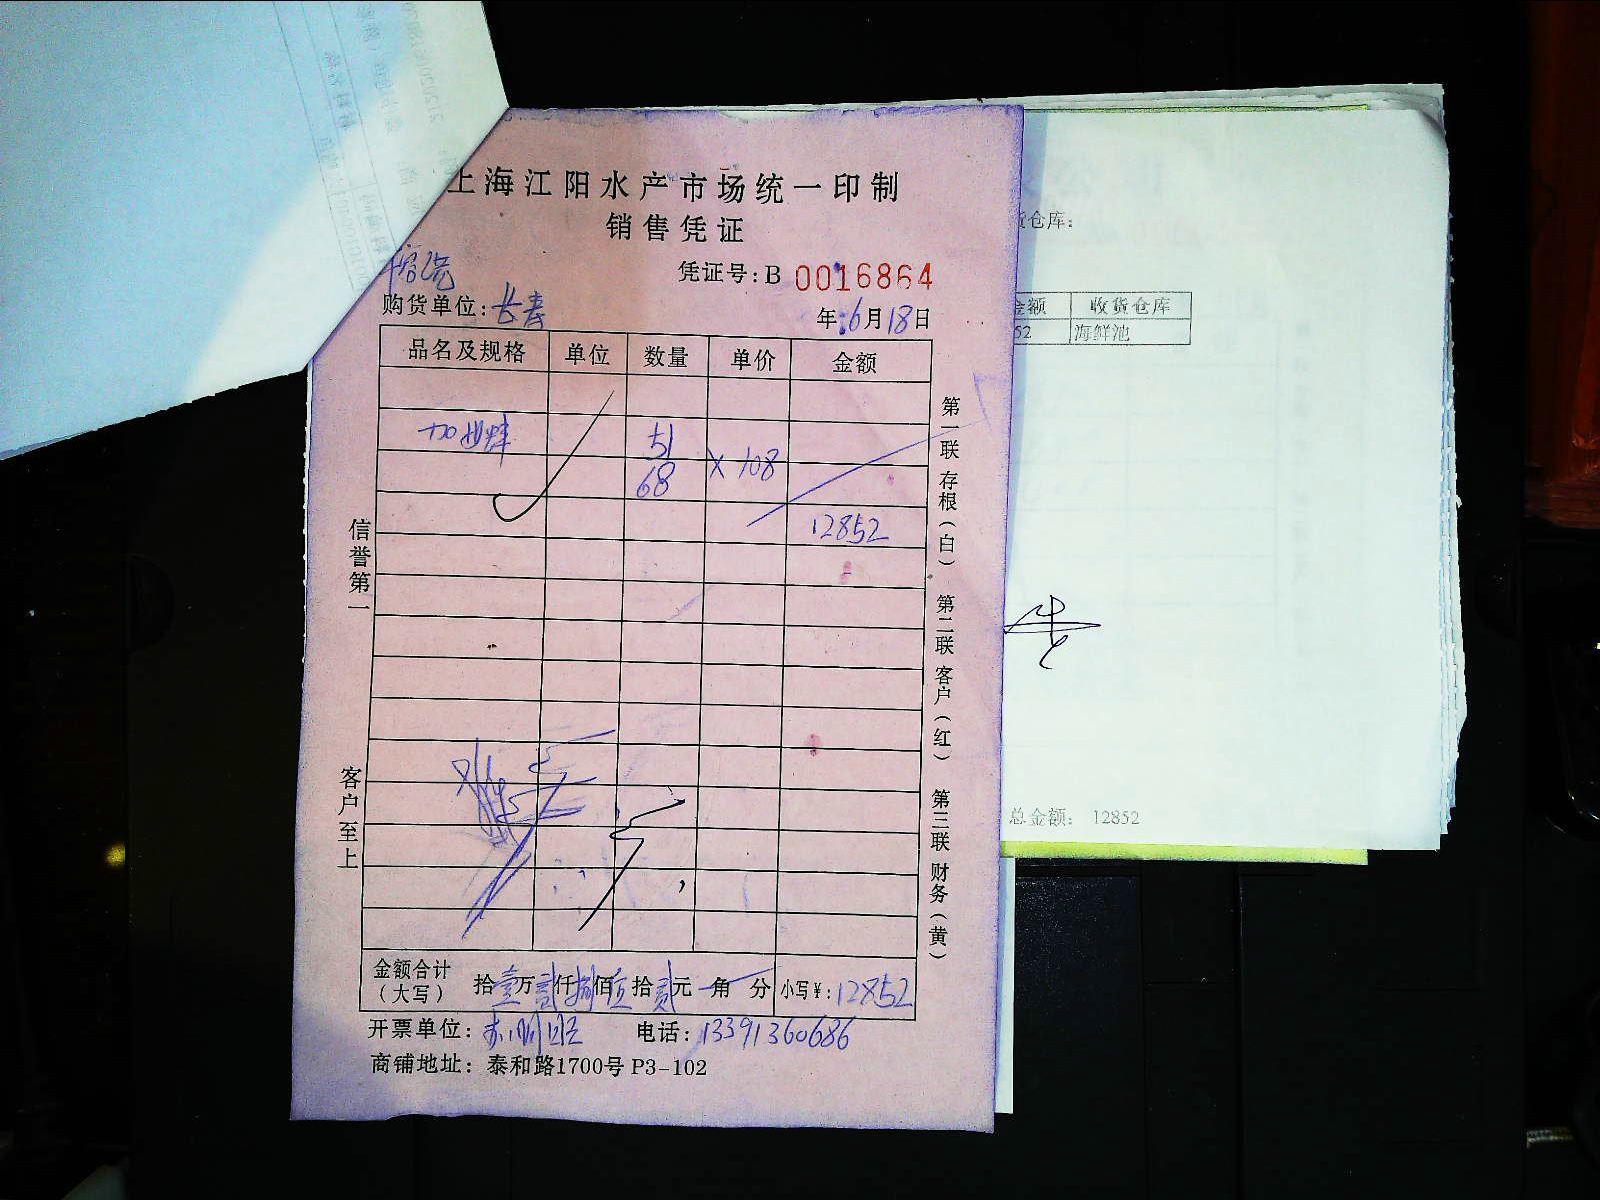 上海江阳水产市场统一印制
销售凭证
凭证号:B 0016864
购货单位:长寿
年 6月18日
品名及规格 单位 数量 单价 金额
加世蚌 51
68 × 108
12852
信誉第一
客户至上
第一联 存根(白) 第二联 客户(红) 第三联 财务(黄)
金额合计
(大写) 拾壹万贰仟捌佰伍拾贰元 角 分 小写¥:12852
开票单位: 电话:13391360686
商铺地址: 泰和路1700号 P3-102
货仓库:
金额 收货仓库
52 海鲜池
总金额: 12852